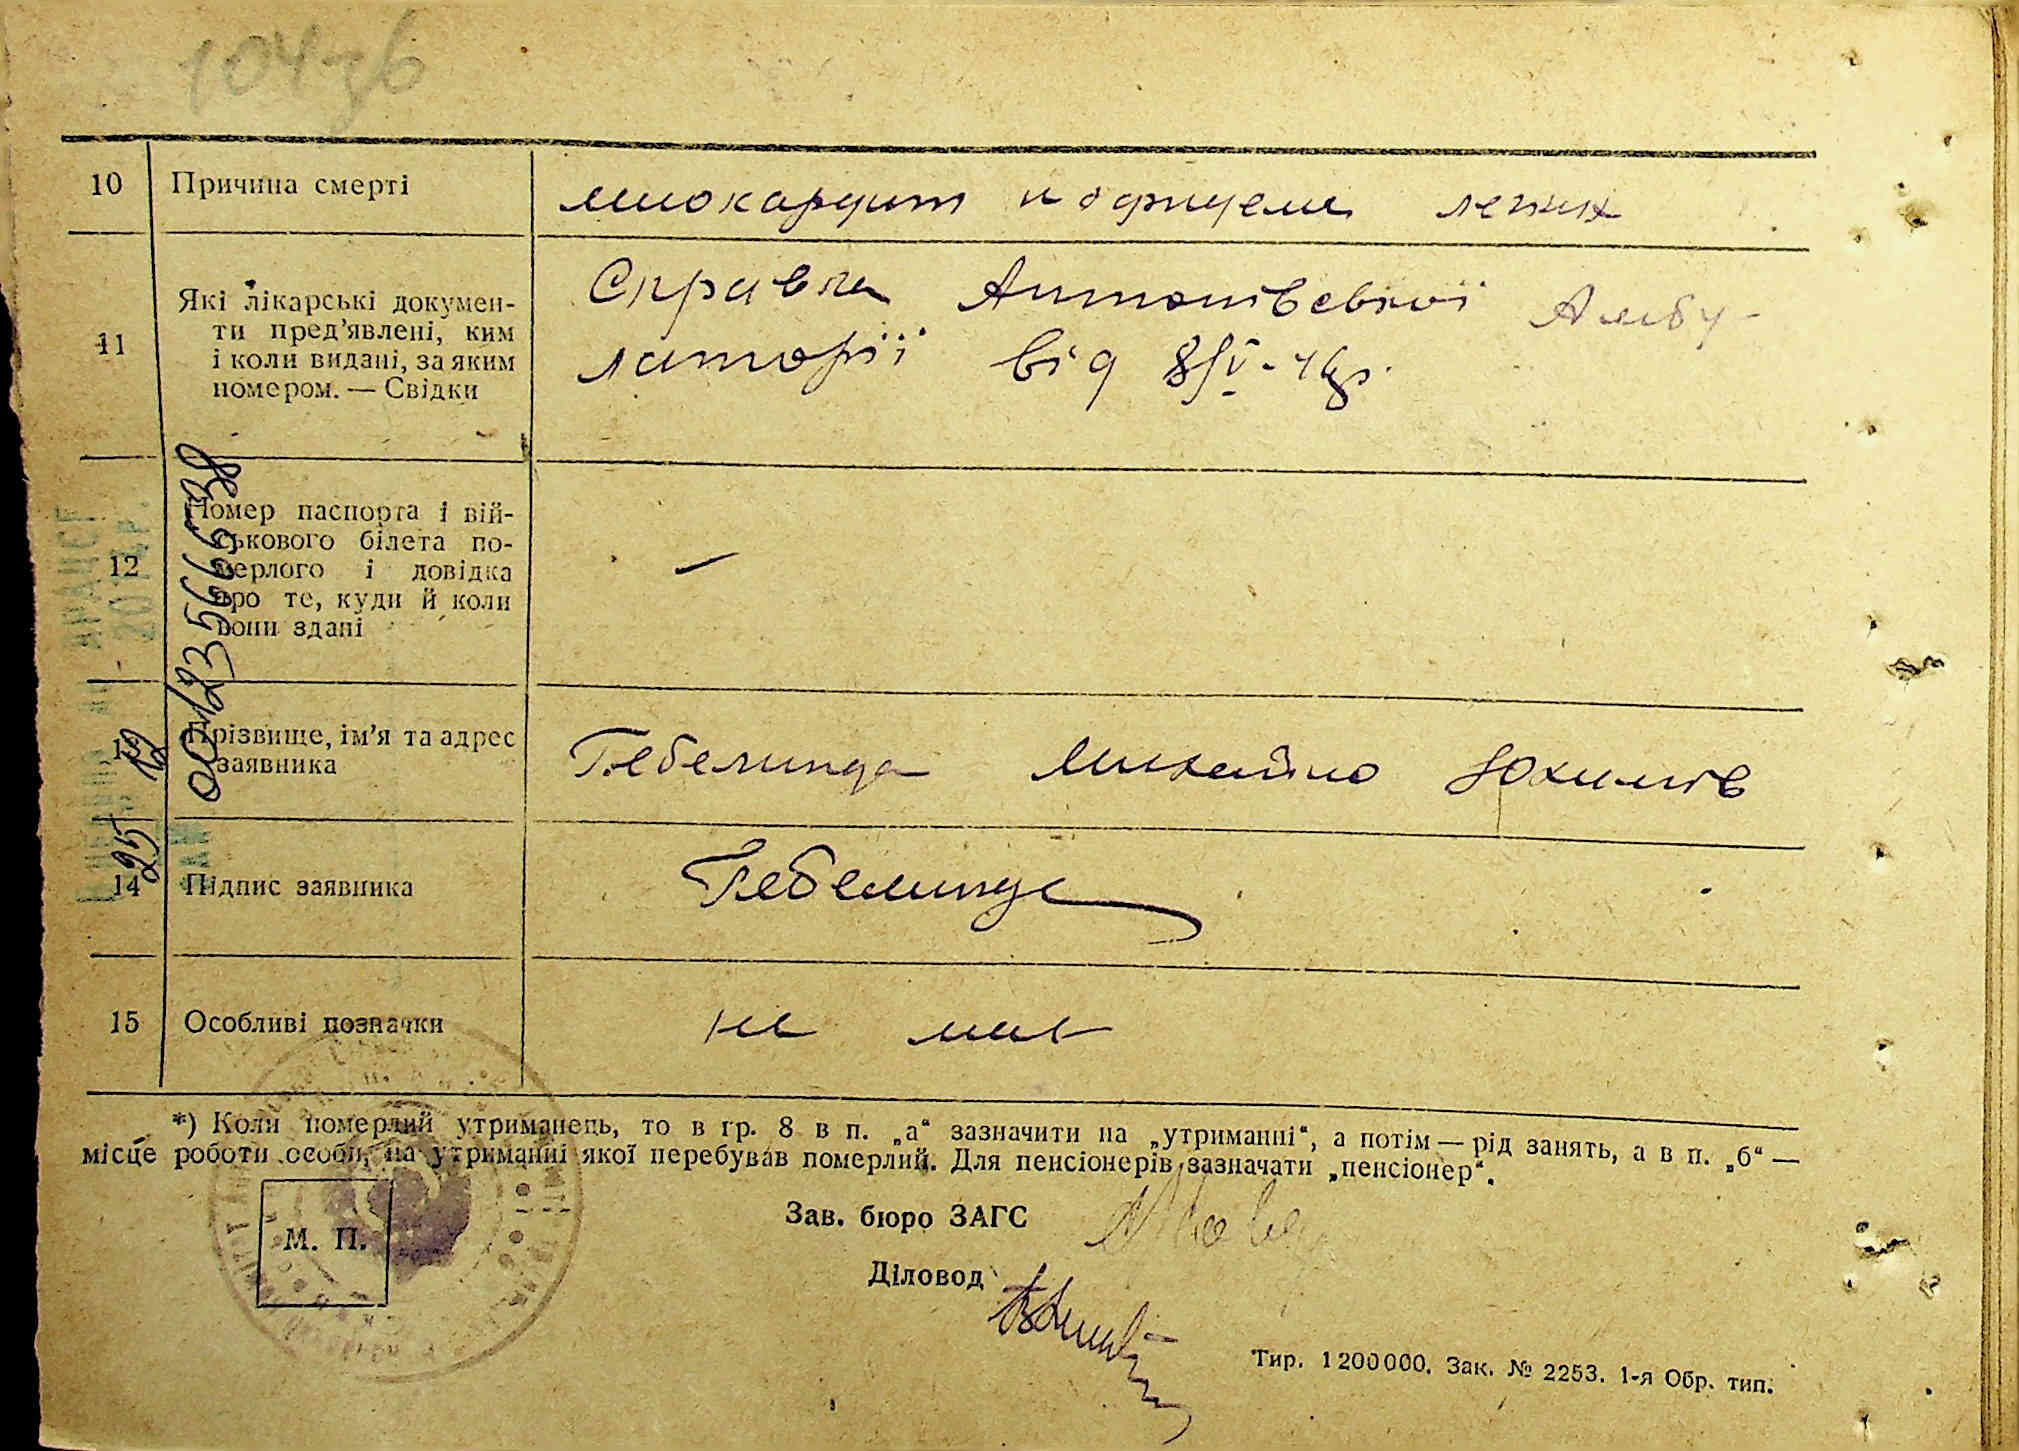 104зв
10 Причина смерті миокардит легких
11 Які лікарські докумен-
ти пред’явлені, ким
і коли видані, за яким
номером. — Свідки
Справка Антонівської Амбу-
латорії від 8/V-41р.
12 Номер паспорта і вій-
ськового білета по-
мерлого і довідка
про те, куди й коли
вони здані
—
00123566698
Прізвище, ім’я та адрес
заявника
Гебелинда Михайло Юхимів
25 12
14 Підпис заявника Гебелинда
15 Особливі позначки не має
*) Коли померлий утриманець, то в гр. 8 в п. „а“ зазначити на „утриманні“, а потім — рід занять, а в п. „б“ —
місце роботи особи, на утриманні якої перебував померлий. Для пенсіонерів зазначати „пенсіонер“.
Зав. бюро ЗАГС
М. П.
Діловод
Тир. 1200000. Зак. № 2253. 1-я Обр. тип.